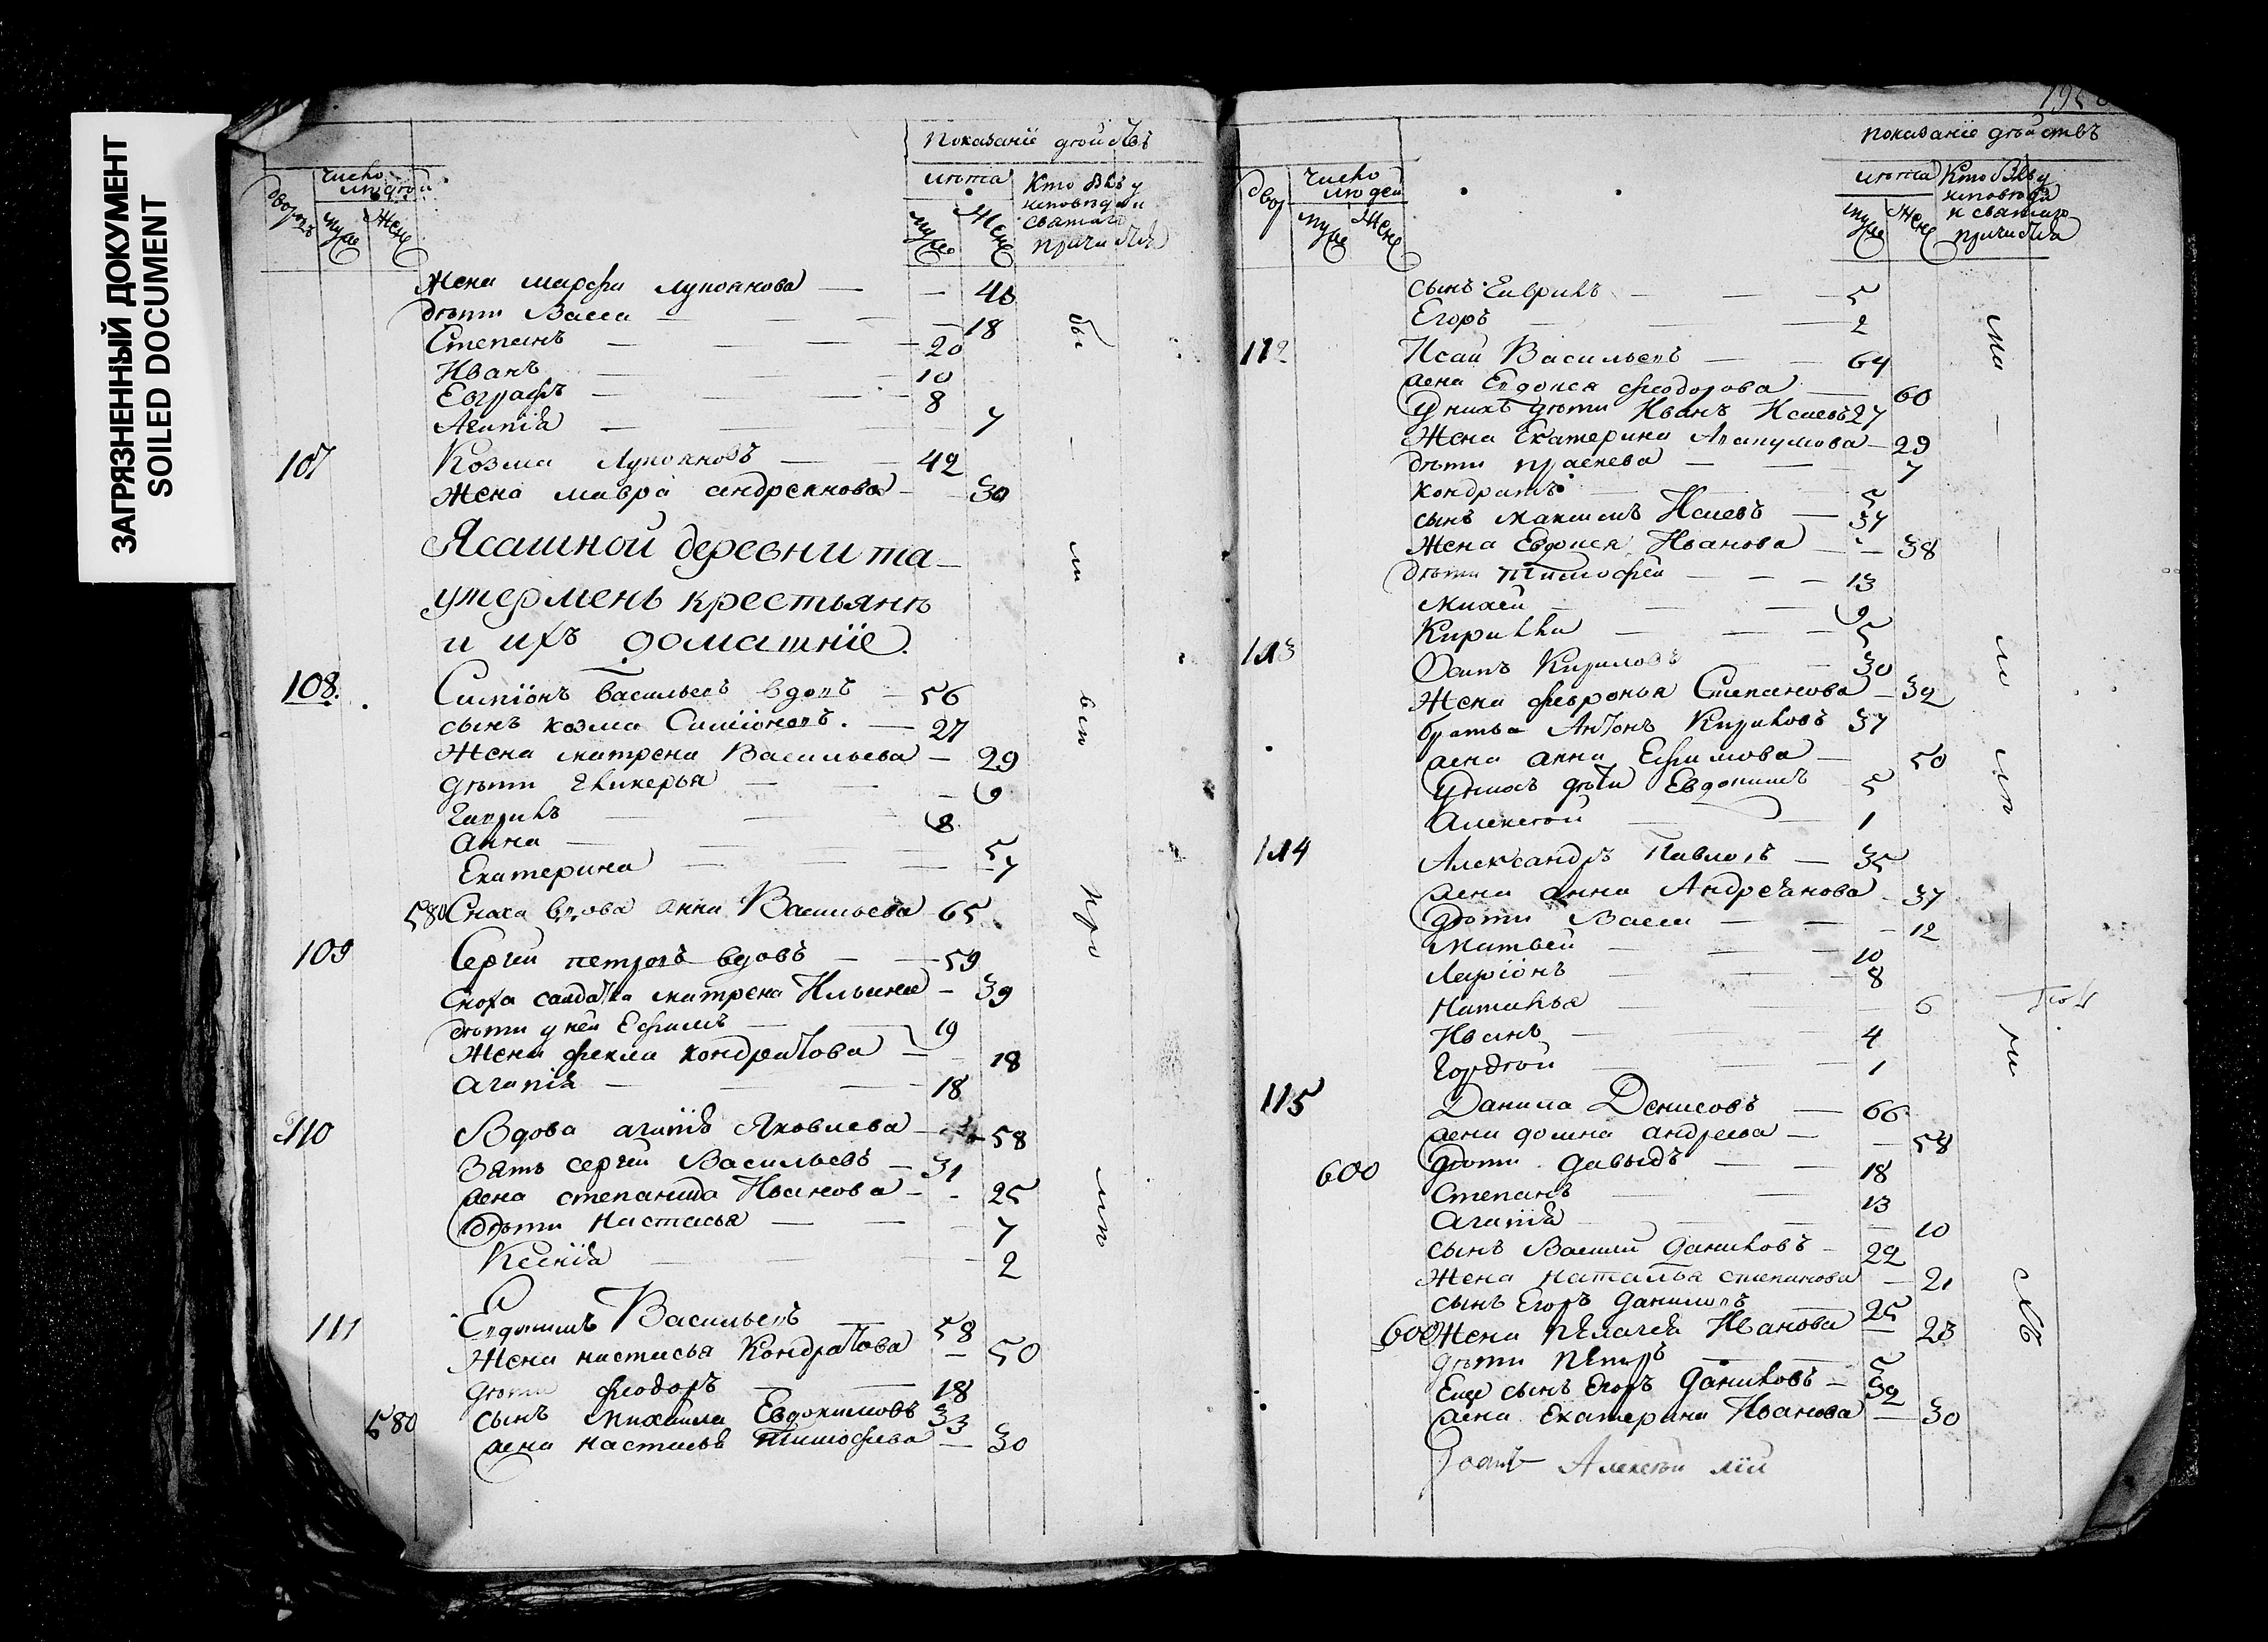 ЗАГРЯЗНЕННЫЙ ДОКУМЕНТ
SOILED DOCUMENT
Показанїе
число людей
лѣта
Кто былъ у исповѣди и святаго причастїя
дворовъ
муж жен
муж жен
Жена марфа лукоянова — — 40
дѣти Васса — — 18
Степанъ — — 20
Иванъ — 10
Евграфъ — — 8
Агапїя — 7
107 Козма Лукояновъ — — 42
Жена мавра андреянова — — 30
Ясашной деревни та-
утермень крестьянѣ
и ихъ домашнїе.
108. Симїонъ васильевъ вдовъ — 56
сынъ козма Симїоновъ. — 27
Жена матрена Васильева — 29
дѣти Гликерья — — 9
Гаврилъ — 8
анна — 5
Екатерина — — 4
580 Снаха вдова анна Васильева 65
109 Сергей петровъ вдовъ — 59
Сноха салдатка матрена Ильина — 39
дѣти у ней Ефимъ — 19
Жена фекла кондратова — 18
агапїя — — 18
110 Вдова агапїя Яковлева — 58
Зять сергей Васильевъ — 31
жена степанида Иванова — - 25
дѣти настасья — — 7
Ксенїя 2
111 Евдокимъ Васильевъ — 58
Жена настасья Кондратова — 50
дѣти феодоръ — — 18
580 сынъ михаила Евдокимовъ 33
жена настасья тимофеева — 30
бы
ли
всѣ
при
показанїе дѣйствъ
двор
число людей
лѣта
Кто былъ у исповѣди и святаго причастїя
муж жен
муж жен
сынъ Гаврилъ — — 5
Егоръ — — 2
112 Исай Васильевъ — — 64
жена Евдокея феодорова — 60
у нихъ дѣти Иванъ Исаевъ 27
Жена Екатерина — 29
дѣти праскева — — 7
кондратъ 5
сынъ максимъ Исаевъ — 37
Жена Евдокея Иванова — — 38
дѣти тимофей — — — 13
михей — — 9
Кирилла — — — 5
113 Кириловъ — 30
Жена февронья Степанова — 32
братья Антонъ Кириловъ 37
жена анна Ефимова — 50
У нихъ дѣти Евдокимъ 5
Алексѣй — 1
114 Александръ Павловъ — 35
жена анна Андреянова — 37
дѣти Васса — — — 12
Матвей — — 10
Ларїонъ — 8
Наталья — 6
Иванъ — — 4
Гордѣй — 1
115 Данила Денисовъ — 66
жена домна андреева — — 58
600 дѣти давыдъ — — 18
Степанъ — — 13
агапїя — — 10
сынъ Василий даниловъ — 22
Жена наталья степанова — 21
сынъ Егоръ даниловъ — 25
600 Жена пелагея Иванова — 23
дѣти петръ — 5
Еще сынъ Егоръ даниловъ — 32
жена Екатерина Иванова — 30
Алексѣй